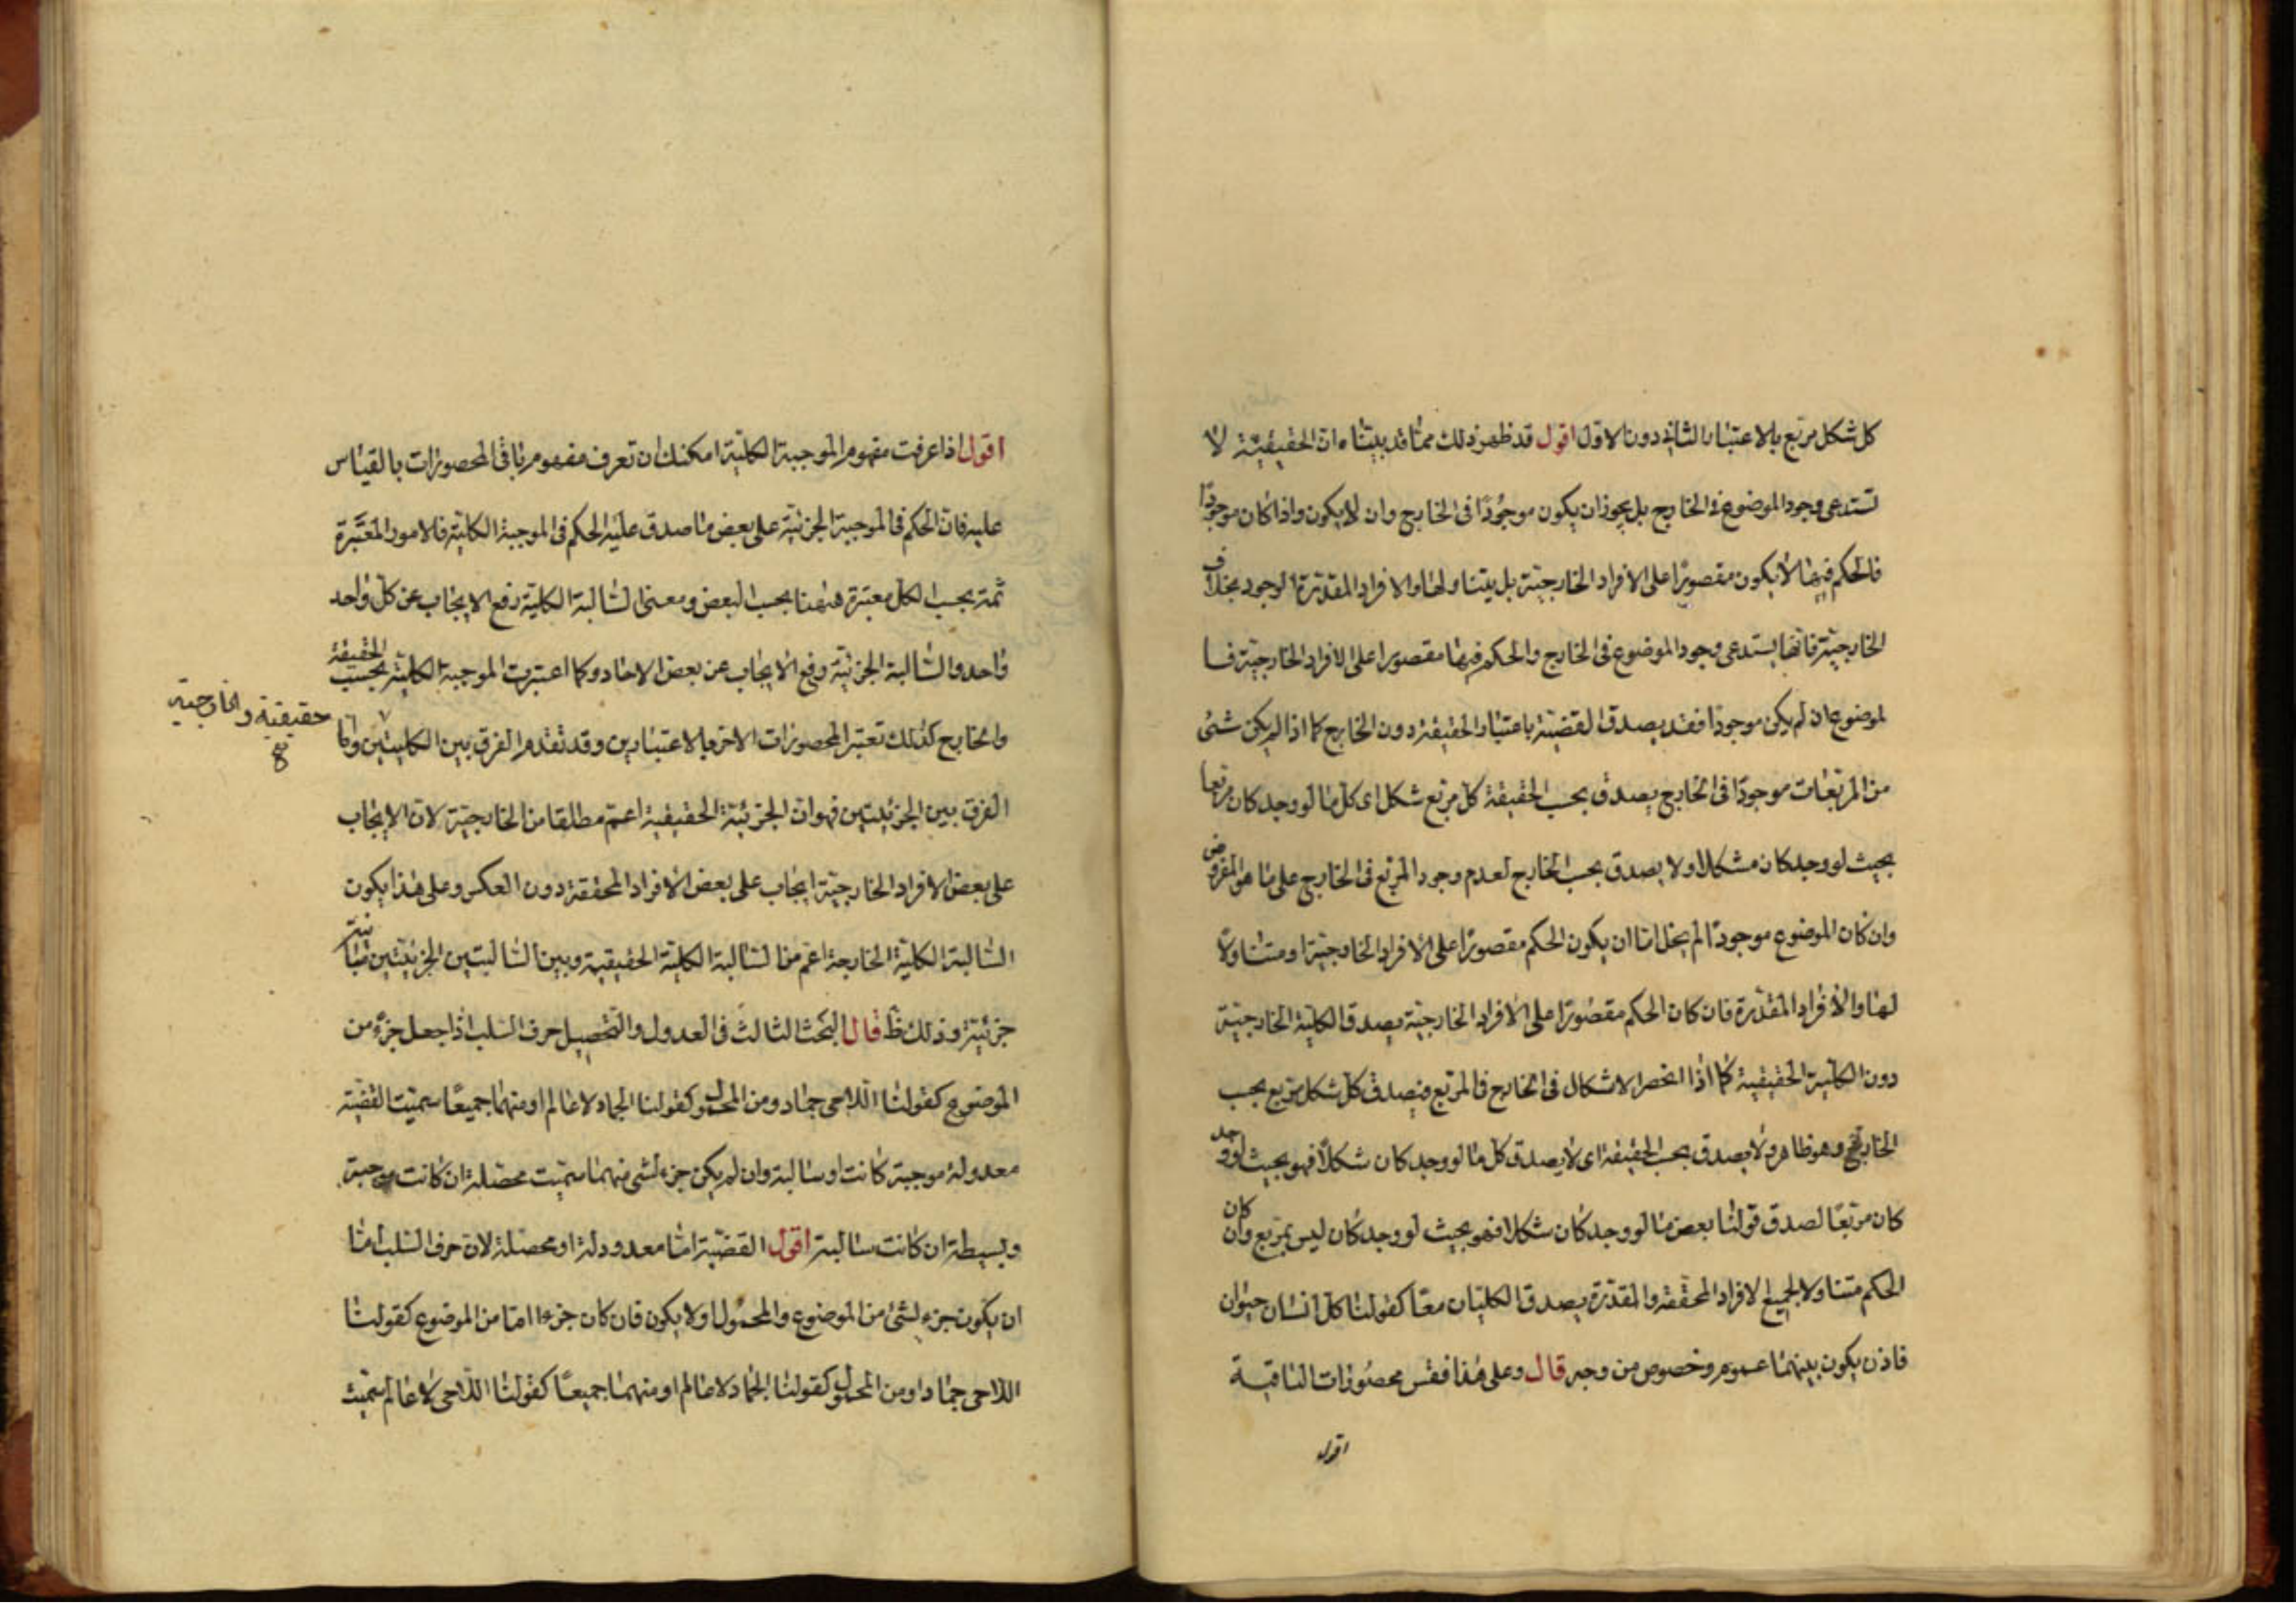 كل شكل مربع بالاعتبار الثاني دون الاول اقول قد ظهر ذلك مما قد بيناه ان الحقيقية لا
تستدعى وجود الموضوع فى الخارج بل يجوز ان يكون موجودًا فى الخارج وان لا يكون واذا كان موجودًا
فالحكم فيها لا يكون مقصورًا على الافراد الخارجية بل يتناولها والافراد المقدرة الوجود بخلاف
الخارجية فانها يستدعى وجود الموضوع فى الخارج والحكم فيها مقصورا على الافراد الخارجية فا
لموضوع ان لم يكن موجودًا فقد يصدق القضية باعتبار الحقيقة دون الخارج كما اذا لم يكن شئ
من المربعات موجودًا فى الخارج يصدق بحسب الحقيقة كل مربع شكل اى كل ما لو وجد كان مربعا
بحيث لو وجد كان مشكلا ولا يصدق بحسب الخارج لعدم وجود المربع فى الخارج على ما هو المفروض
وان كان الموضوع موجودًا لم يخل اما ان يكون الحكم مقصورًا على الافراد الخارجية او متناولا
لها والافراد المقدرة فان كان الحكم مقصورًا على الافراد الخارجية يصدق الكلية الخارجية
دون الكلية الحقيقية كما اذا انحصر الاشكال فى الخارج فى المربع فيصدق كل شكل مربع بحسب
الخارج وهو ظاهر ولا يصدق بحسب الحقيقة اى لا يصدق كل ما لو وجد كان شكلاً فهو بحيث لو وجد
كان مربعًا لصدق قولنا بعض ما لو وجد كان شكلا فهو بحيث لو وجد كان ليس بمربع وان كان
الحكم متناولا لجميع الافراد المحققة والمقدرة يصدق الكليتان معًا كقولنا كل انسان حيوان
فاذن يكون بينهما عموم وخصوص من وجه قال وعلى هذا فقس محصورات الباقية
اقول
اقول اذا عرفت مفهوم الموجبة الكلية امكنك ان تعرف مفهوم باقى المحصورات بالقياس
عليه فان الحكم فى الموجبة الجزئية على بعض ما صدق عليه الحكم فى الموجبة الكلية فالامور المعتبرة
ثمة بحسب الكل معتبرة ههنا بحسب البعض ومعنى السالبة الكلية رفع الايجاب عن كل واحد
واحد والسالبة الجزئية رفع الايجاب عن بعض الاحاد وكما اعتبرت الموجبة الكلية بحسب الحقيقة
والخارج كذلك تعتبر المحصورات الاخر بالاعتبارين وقد تقدم الفرق بين الكليتين واما
حقيقية والخارجية
الفرق بين الجزئيتين فهو ان الجزئية الحقيقية اعم مطلقا من الخارجية لان الايجاب
على بعض الافراد الخارجية ايجاب على بعض الافراد المحققة دون العكس وعلى هذا يكون
السالبة الكلية الخارجة اعم من السالبة الكلية الحقيقية وبين السالبتين الجزئيتين مباينة
جزئية وذلك ظ قال البحث الثالث فى العدول والتحصيل حرف السلب اذا جعل جزء من
الموضوع كقولنا اللاحى جماد ومن المحمول كقولنا الجماد لا عالم او منهما جميعًا سميت القضية
معدولة موجبة كانت او سالبة وان لم يكن جزء لشى منهما سميت محصلة ان كانت موجبة
وبسيطة ان كانت سالبة اقول القضية اما معدودلة او محصلة لان حرف السلب اما
ان يكون جزء لشئ من الموضوع والمحمول او لا يكون فان كان جزءا اما من الموضوع كقولنا
اللاحى جماد او من المحمول كقولنا الجماد لا عالم او منهما جميعًا كقولنا اللاحى لا عالم سميت